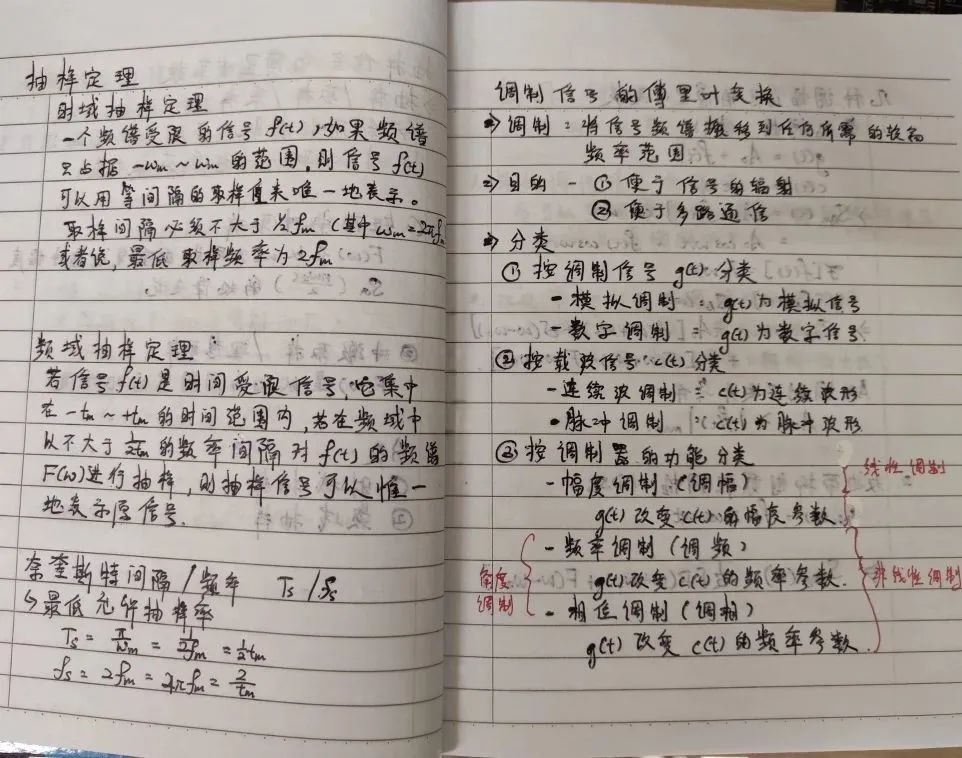 抽样定理
时域抽样定理
一个频谱受限的信号 f(t),如果频谱
只占据 -ωm ~ ωm 的范围,则信号 f(t)
可以用等间隔的取样值来唯一地表示。
取样间隔必须不大于 1/2fm (其中 ωm = 2πfm
或者说,最低取样频率为 2fm
频域抽样定理
若信号 f(t) 是时间受限信号,它集中
在 -tm ~ +tm 的时间范围内,若在频域中
以不大于 1/2tm 的频率间隔对 f(t) 的频谱
F(ω)进行抽样,则抽样信号可以惟一
地表示原信号.
奈奎斯特间隔/频率 Ts/fs
↳最低允许抽样率
Ts = π/ωm = 1/2fm = 1/2 tm
fs = 2fm = 4πfm = 2/tm
调制信号的傅里叶变换
⇒ 调制:将信号频谱搬移到任何所需的较高
频率范围
⇒ 目的 - ① 便于信号的辐射
② 便于多路通信
⇒ 分类
① 按调制信号 g(t) 分类
- 模拟调制 : g(t) 为模拟信号
- 数字调制 : g(t) 为数字信号
② 按载波信号 c(t) 分类
- 连续波调制 : c(t) 为连续波形
- 脉冲调制 : c(t) 为脉冲波形
③ 按调制器的功能分类
- 幅度调制 (调幅)
g(t) 改变 c(t) 的幅度参数.
线性调制
- 频率调制 (调频)
g(t) 改变 c(t) 的频率参数.
角度
调制
非线性调制
- 相位调制 (调相)
g(t) 改变 c(t) 的频率参数.